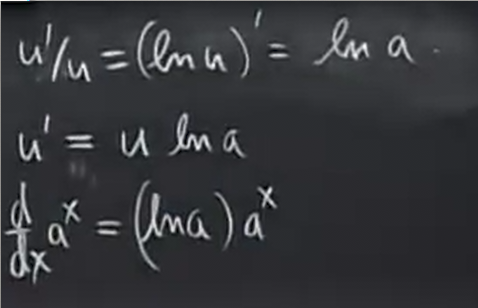 u'/u = (ln u)' = ln a.
u' = u ln a
d/dx a^x = (ln a) a^x